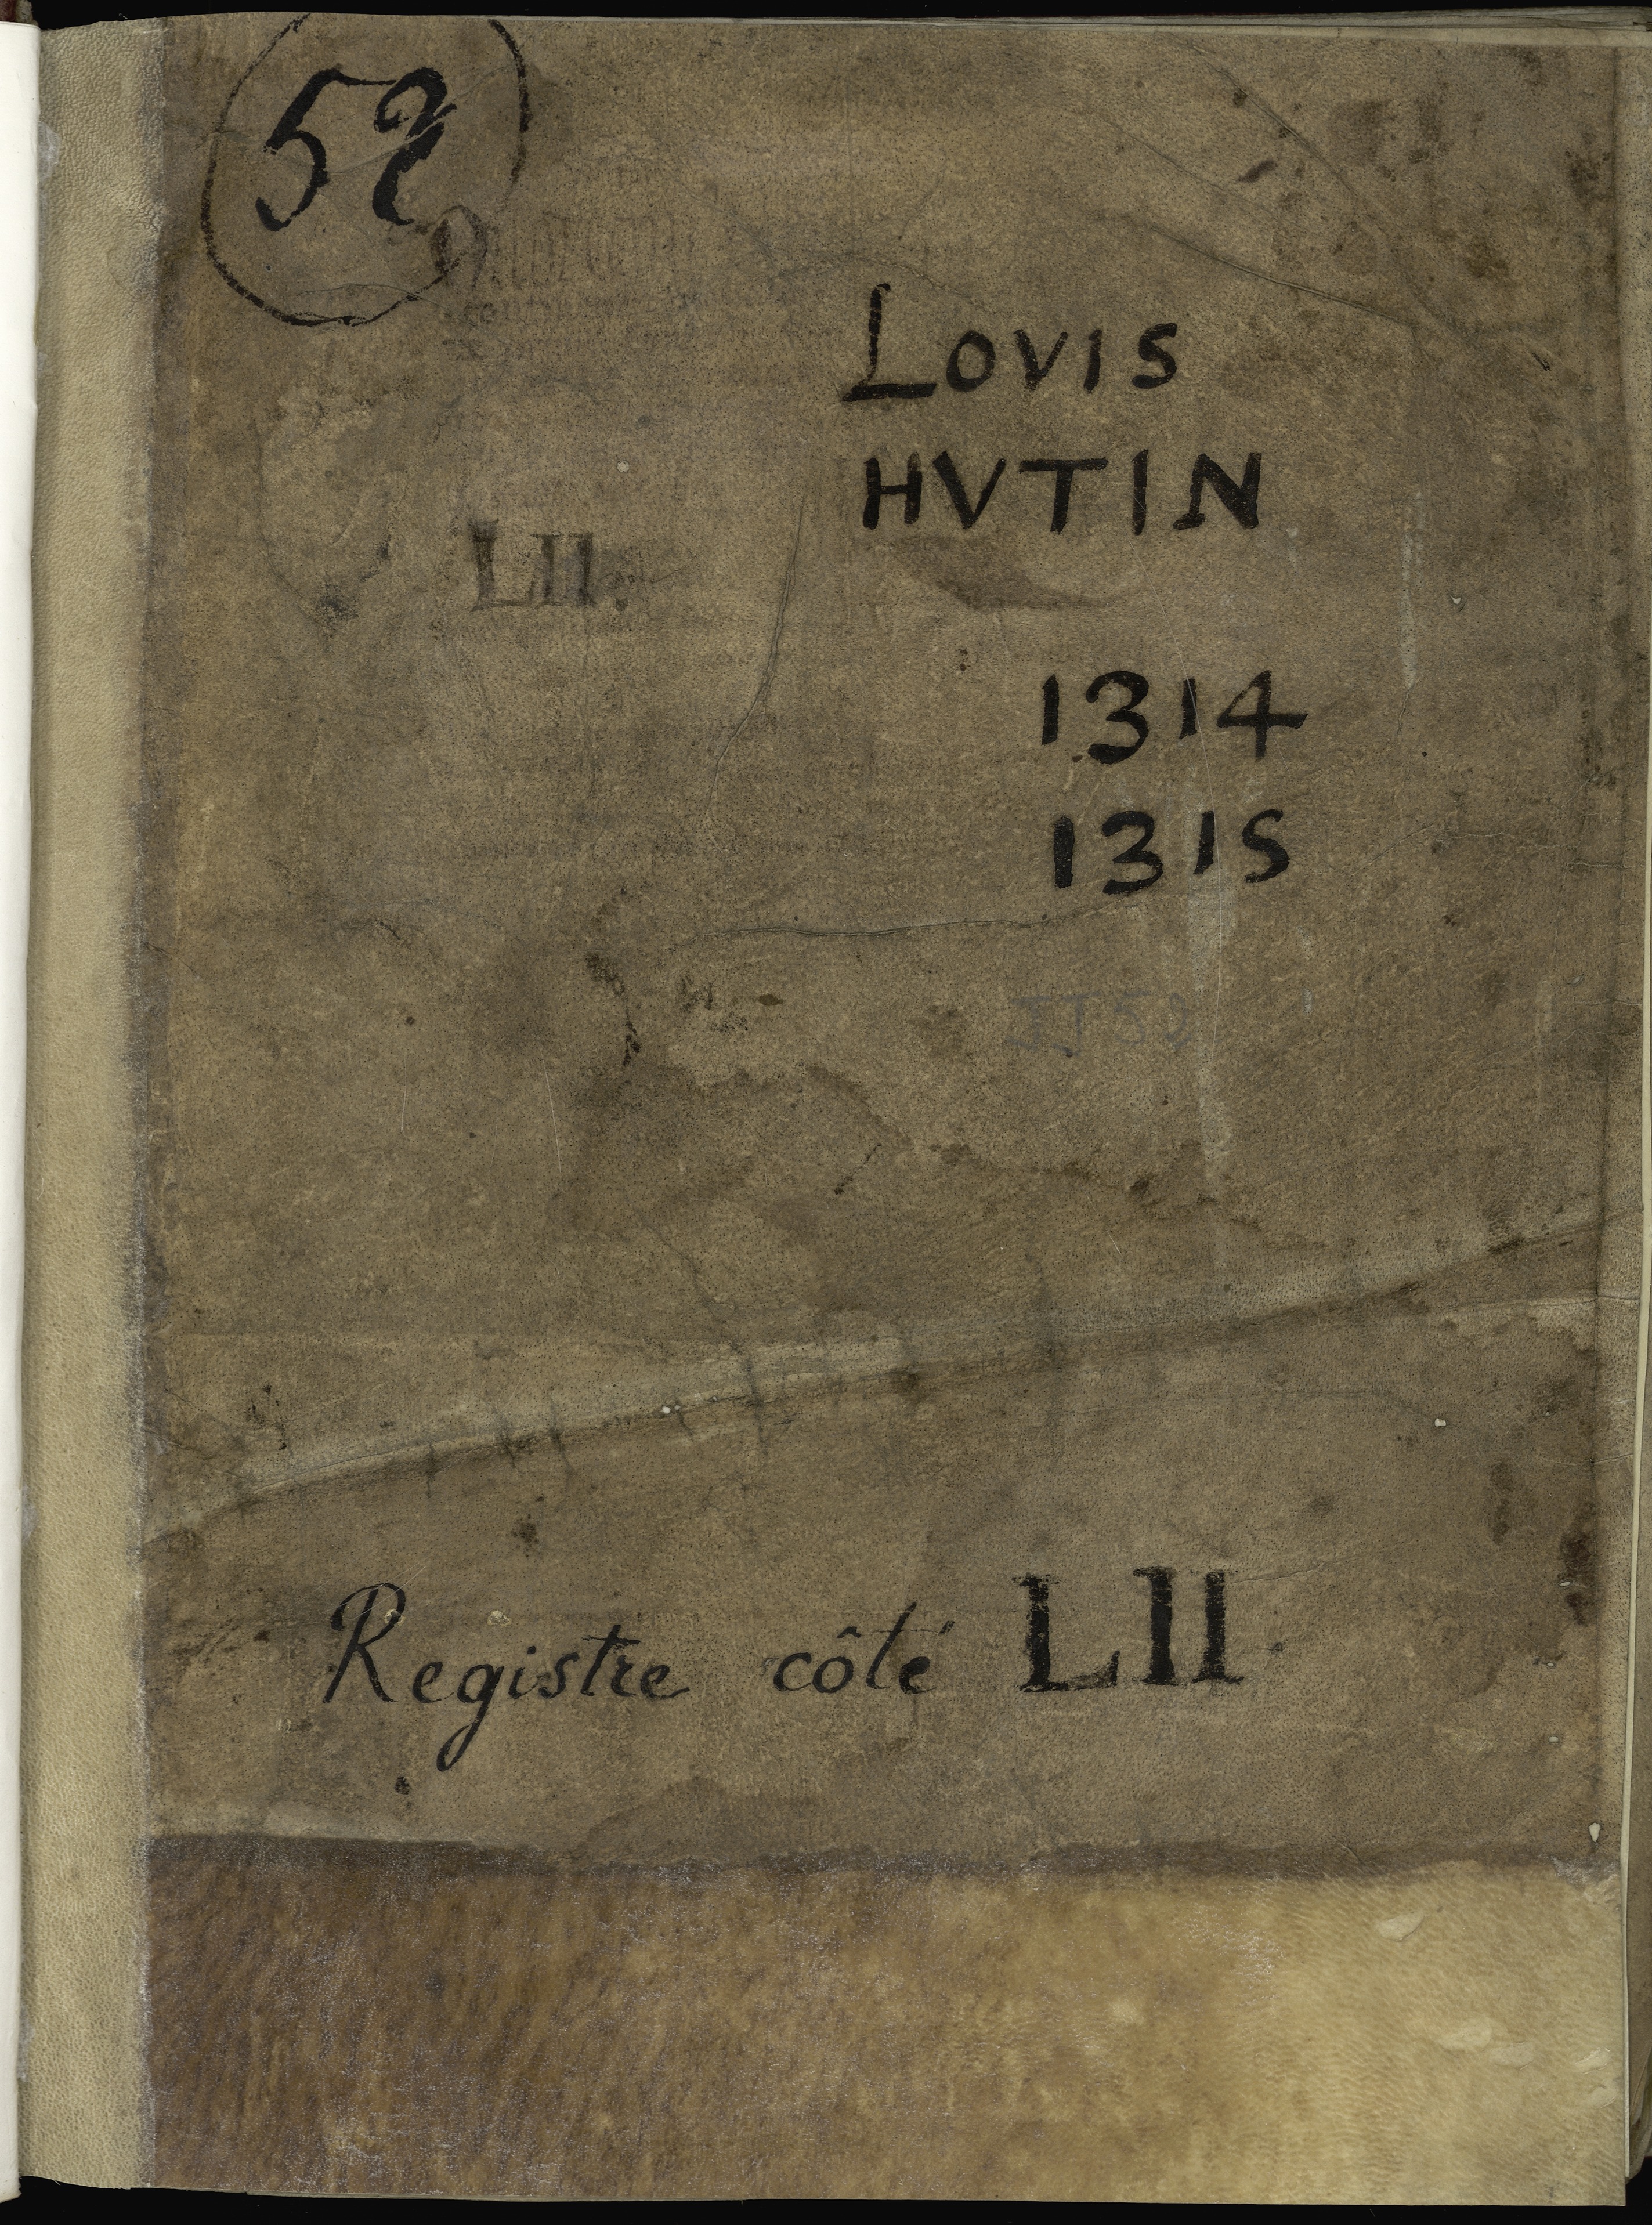 52
LOVIS
HVTIN
LII.
1314
1315
JJ52
Registre côté LII